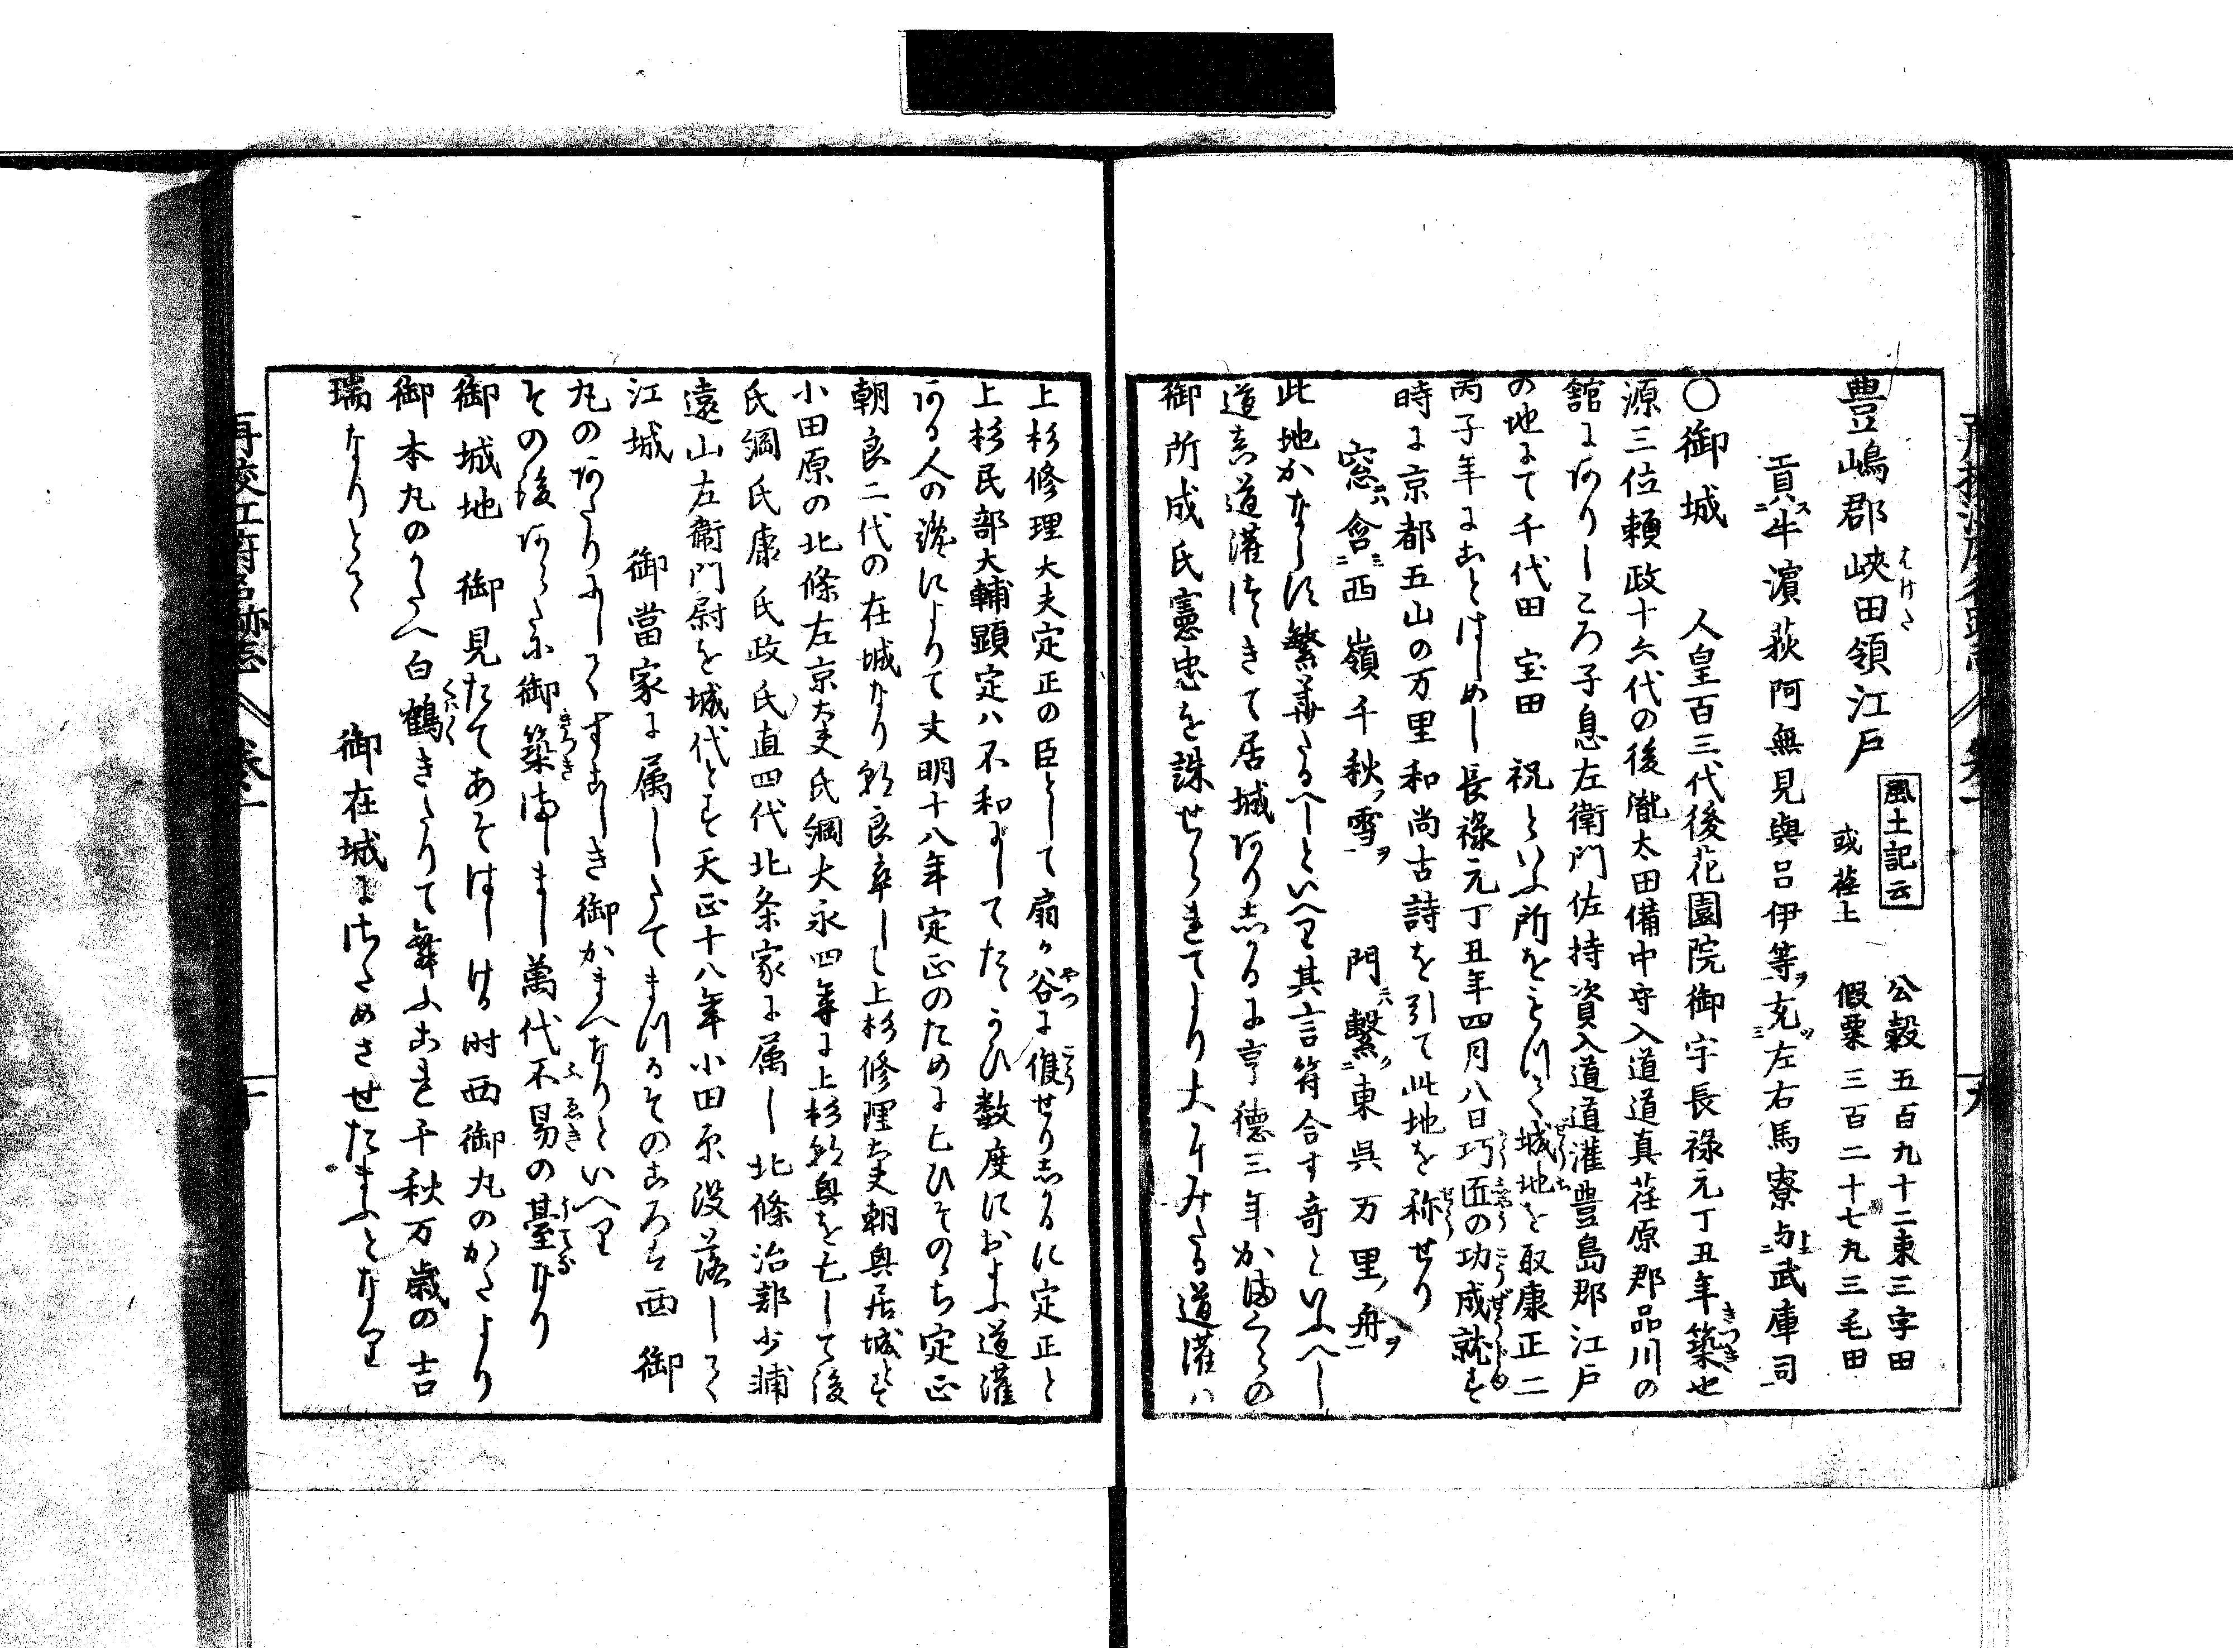 豊嶋郡峡田領江戸
風土記云
公穀五百九十二束三字田
或荏土
假粟三百二十七丸三毛田
貢牛濵荻阿無見與呂伊等充左右馬寮与武庫司
〇御城 人皇百三代後花園院御宇長禄元丁丑年築也
源三位頼政十六代の後胤太田備中守入道道真荏原郡品川の
舘にありしころ子息左衛門佐持資入道道灌豊島郡江戸
の地にて千代田 宝田 祝といふ所をとりたて城地を取康正二
丙子年にことはしめし長禄元丁丑年四月八日巧匠の功成就す
時に京都五山の万里和尚古詩を引て此地を称せり
窓含西嶺千秋雪 門繋東呉万里舟
此地かならす繁華たるへしといへり其言符合す奇といふへし
道真道灌つゝきて居城ありしかるに亨徳三年かまくらの
御所成氏憲忠を誅せられてより大にみたる道灌ハ
上杉修理大夫定正の臣として扇か谷に復せりしかるに定正と
上杉民部大輔顕定ハ不和にしてたゝかひ数度におよふ道灌
ある人の讒によりて文明十八年定正のために亡ひそのゝち定正
朝良二代の在城なり朝良卒して上杉修理大夫朝興居城す
小田原の北條左京大夫氏綱大永四年に上杉朝興を亡して後
氏綱氏康氏政氏直四代北条家に属し北條治部少輔
遠山左衛門尉を城代とす天正十八年小田原没落して
江城 御當家に属したてまつるそのころは西御
丸のあたりにしてすこしき御かまへなりといへり
その後あらたに御築ましまし萬代不易の臺なり
御城地 御見たてあそはしける時西御丸のかたより
御本丸のかたへ白鶴きたりて舞ふこれ千秋万歳の吉
瑞なりとて 御在城にさためさせたまふとなり
再校江府名跡志 巻一